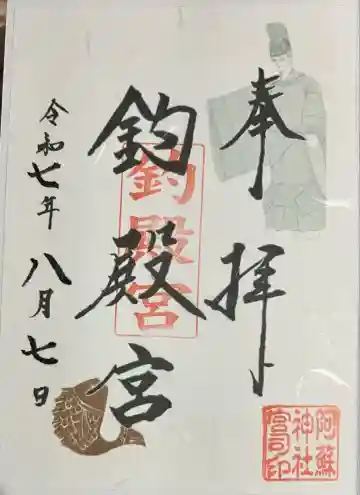 奉拝
釣殿宮
釣殿宮
令和七年
八月七日
阿蘇
神社
宮司印